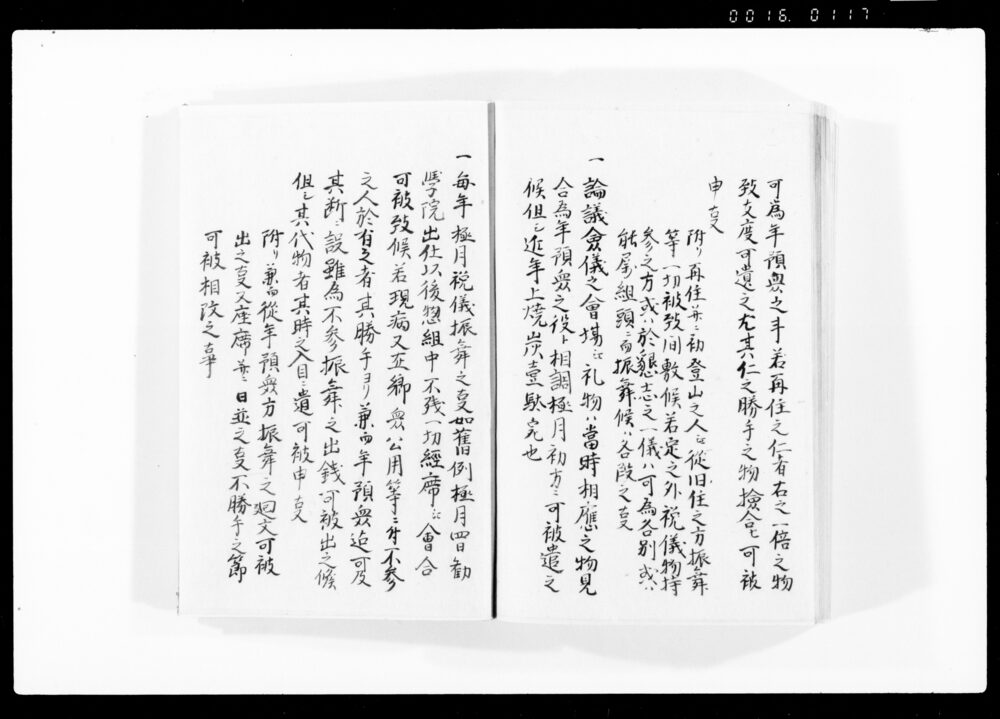 0016.0117
可為年預衆之斗若再住之仁有右之一倍之物
致支度可遣之尤其仁之勝手之物撿合セ可被
申叓
附リ再住幷ニ初登山之人江従旧住之方振舞
等一切被致間敷候若定之外祝儀物持
参之方或ハ於懇志之一儀ハ可為各別或ハ
能屋組頭ニ而振舞候ハ各段之叓
一論議會儀之會場江礼物ハ當時相應之物見
合為年預衆之役ト相調極月初方ニ可被遣之
候但シ近年上焼炭壹駄宛也
一毎年極月祝儀振舞之叓如舊例極月四日勧
學院出仕以後惣組中不残一切經席江會合
可被致候若現病又在郷衆公用等ニ付不参
之人於有之者其勝手ヨリ兼而年預衆迄可及
其断ニ設雖為不参振舞之出銭可被出之候
但シ其代物者其時之入目ニ遣可被申叓
附リ兼而従年預衆方振舞之廻文可被
出之叓又座席幷ニ日並之叓不勝手之節
可被相改之事